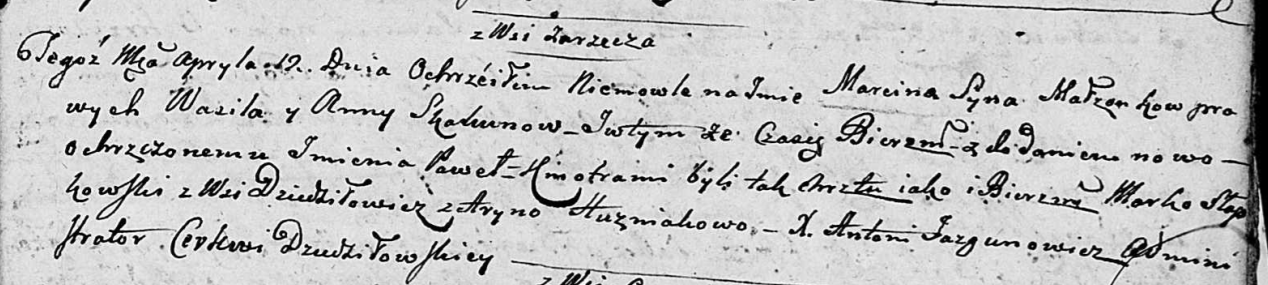 z Wsi Zarzecza
Tegoż Mca Apryla 12. Dnia Ochrzciłem Niemowle na Imie Marcina Syna Małzonkow pra
wych Wasila y Anny Skakunow – Iwtym ze Czasie Bierzm z dodaniem nowo –
ochrzczonemu Imienia Paweł – Kmotrami byli tak chrztu iako i Bierzm Marko Słap
kowski z Wsi Dziedziłowicz z Aryno Huzniakowo. – X. Antoni Jazgunowicz Admini
strator Cerkwi Dziedziłowskiey
z Wsi